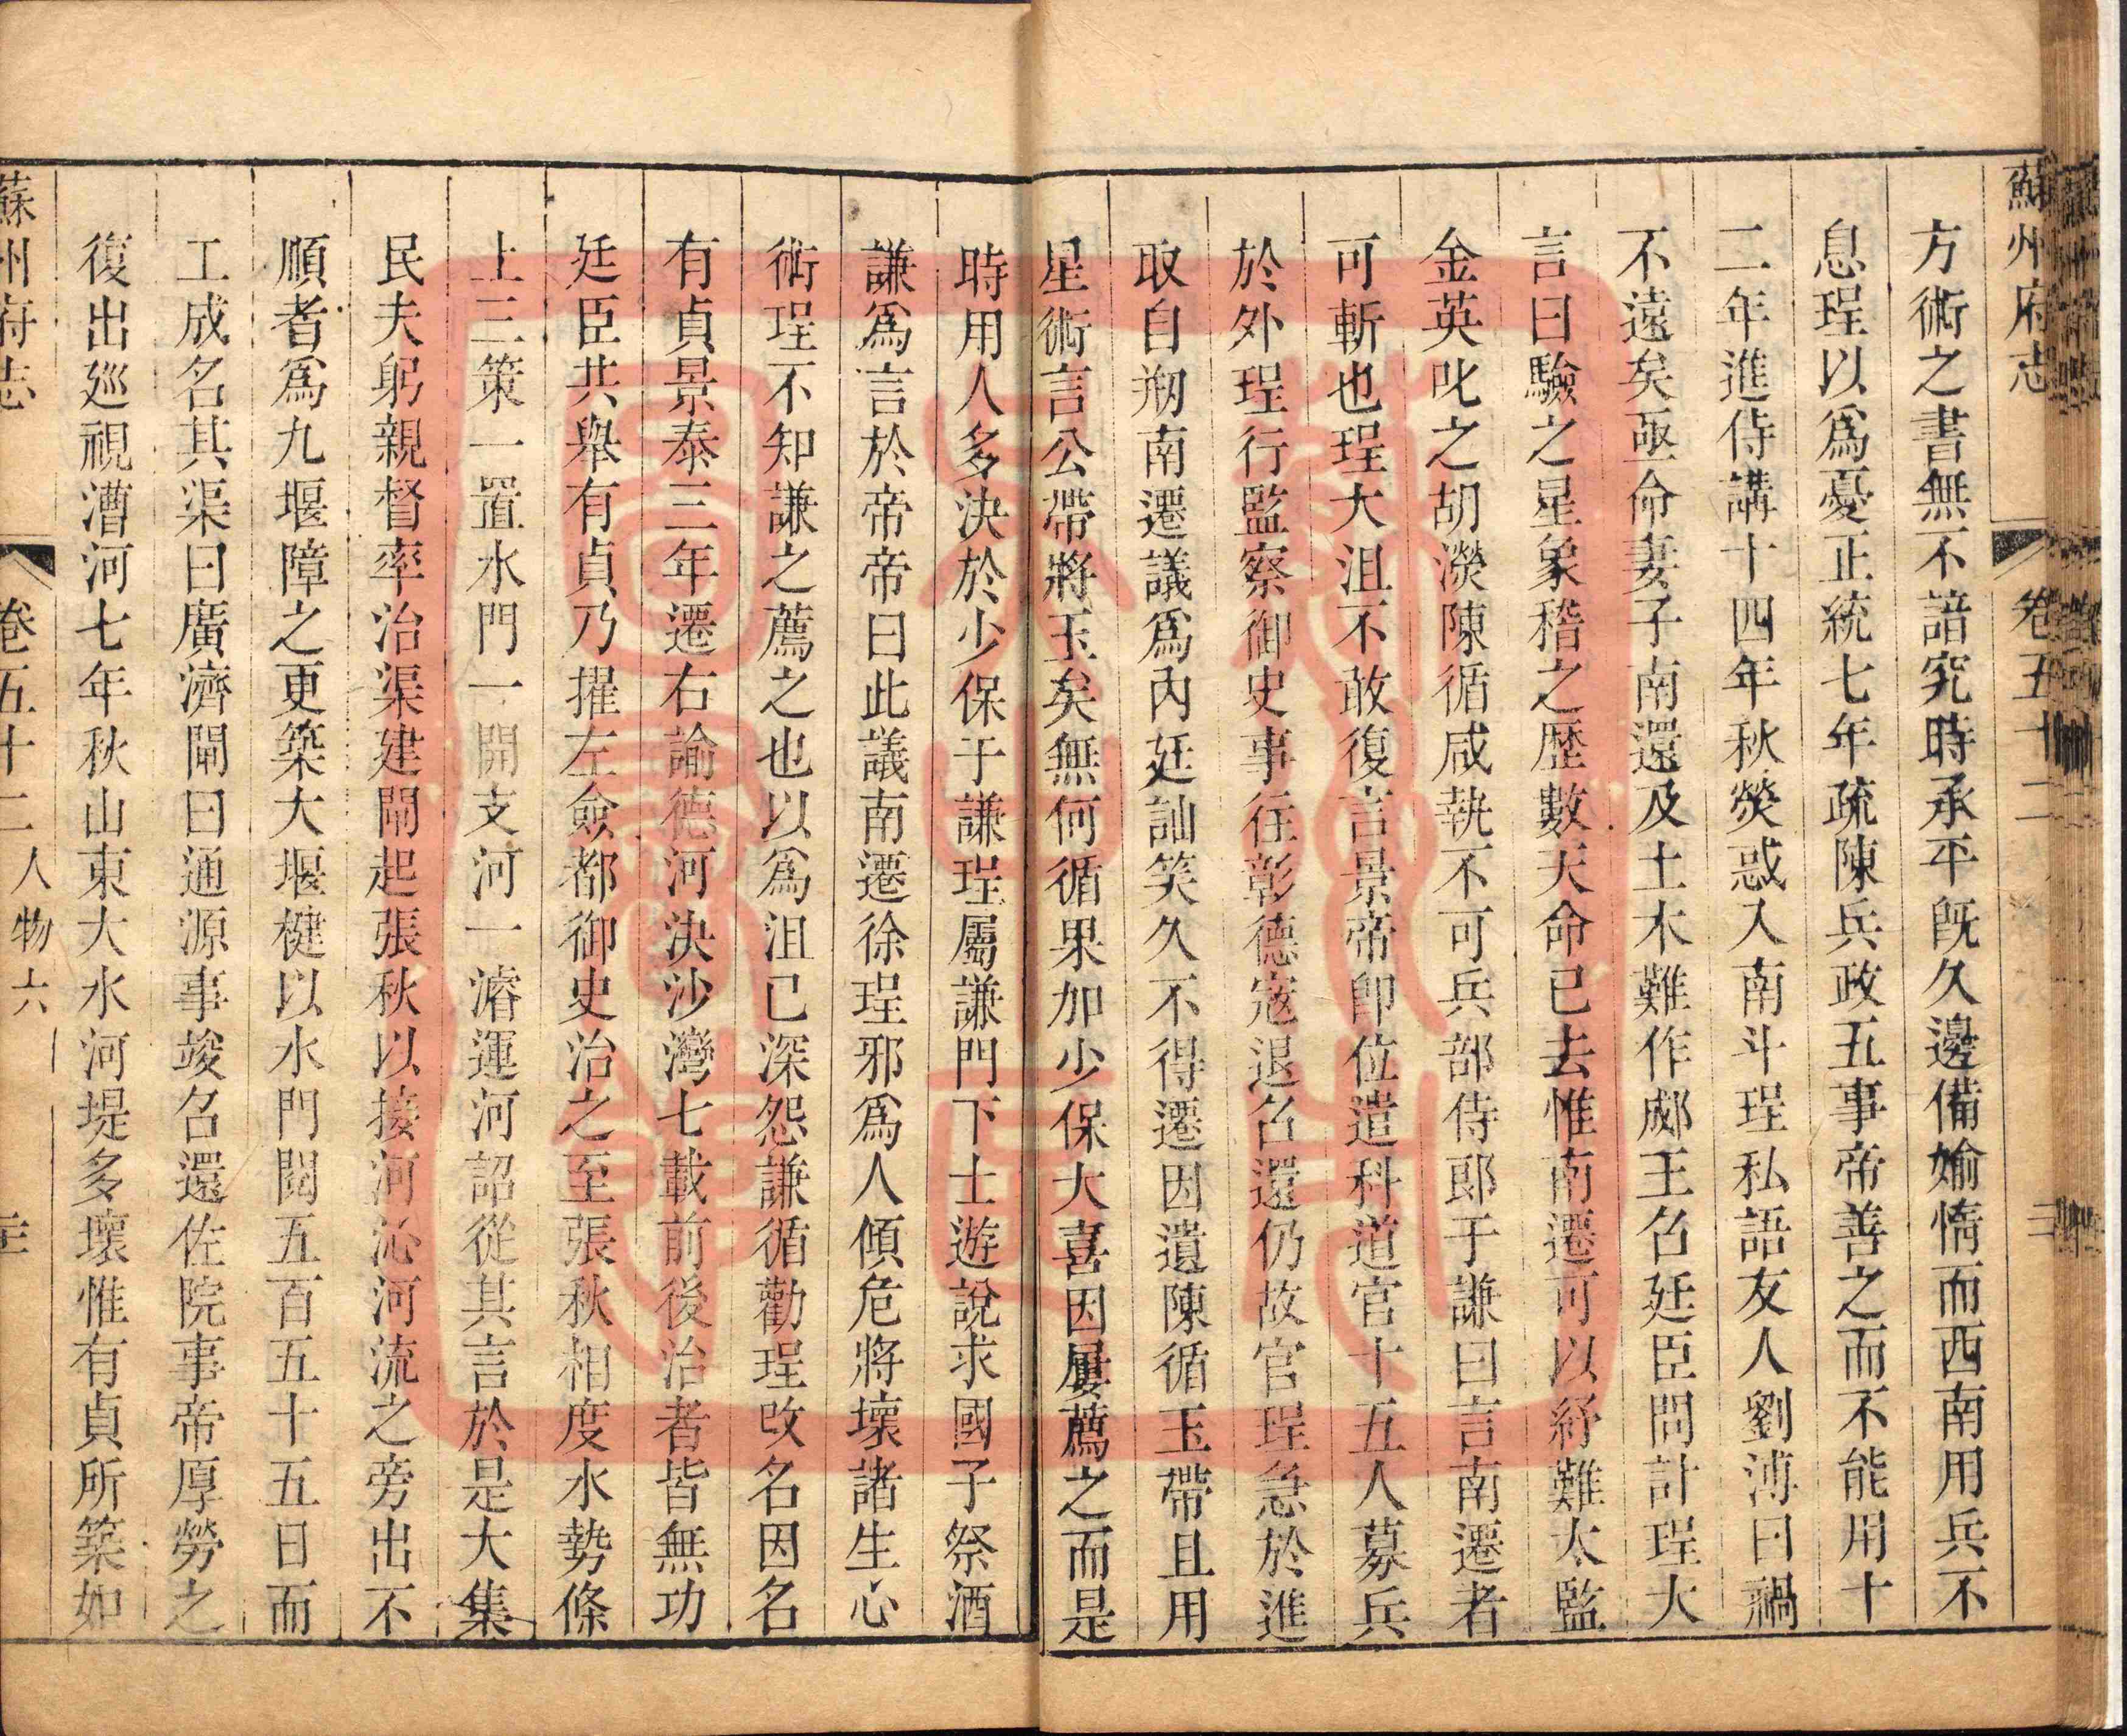 蘇州府志 卷五十二 三
方術之書無不諳究時承平旣久邊備媮惰而西南用兵不
息珵以爲憂正統七年疏陳兵政五事帝善之而不能用十
二年進侍講十四年秋熒惑入南斗珵私語友人劉溥曰禍
不遠矣亟命妻子南還及土木難作郕王召廷臣問計珵大
言曰驗之星象稽之歷數天命已去惟南遷可以紓難太監
金英叱之胡濙陳循咸執不可兵部侍郞于謙曰言南遷者
可斬也珵大沮不敢復言景帝卽位遣科道官十五人募兵
於外珵行監察御史事往彰德寇退召還仍故官珵急於進
取自剏南遷議爲內廷訕笑久不得遷因遺陳循玉帶且用
星術言公帶將玉矣無何循果加少保大喜因屢薦之而是
時用人多決於少保于謙珵屬謙門下士遊說求國子祭酒
謙爲言於帝帝曰此議南遷徐珵邪爲人傾危將壞諸生心
術珵不知謙之薦之也以爲沮己深怨謙循勸珵改名因名
有貞景泰三年遷右諭德河決沙灣七載前後治者皆無功
廷臣共舉有貞乃擢左僉都御史治之至張秋相度水勢條
上三策一置水門一開支河一濬運河詔從其言於是大集
民夫躬親督率治渠建閘起張秋以接河沁河流之旁出不
順者爲九堰障之更築大堰楗以水門閱五百五十五日而
工成名其渠曰廣濟閘曰通源事竣召還佐院事帝厚勞之
復出巡視漕河七年秋山東大水河堤多壞惟有貞所築如
蘇州府志 卷五十二 人物六